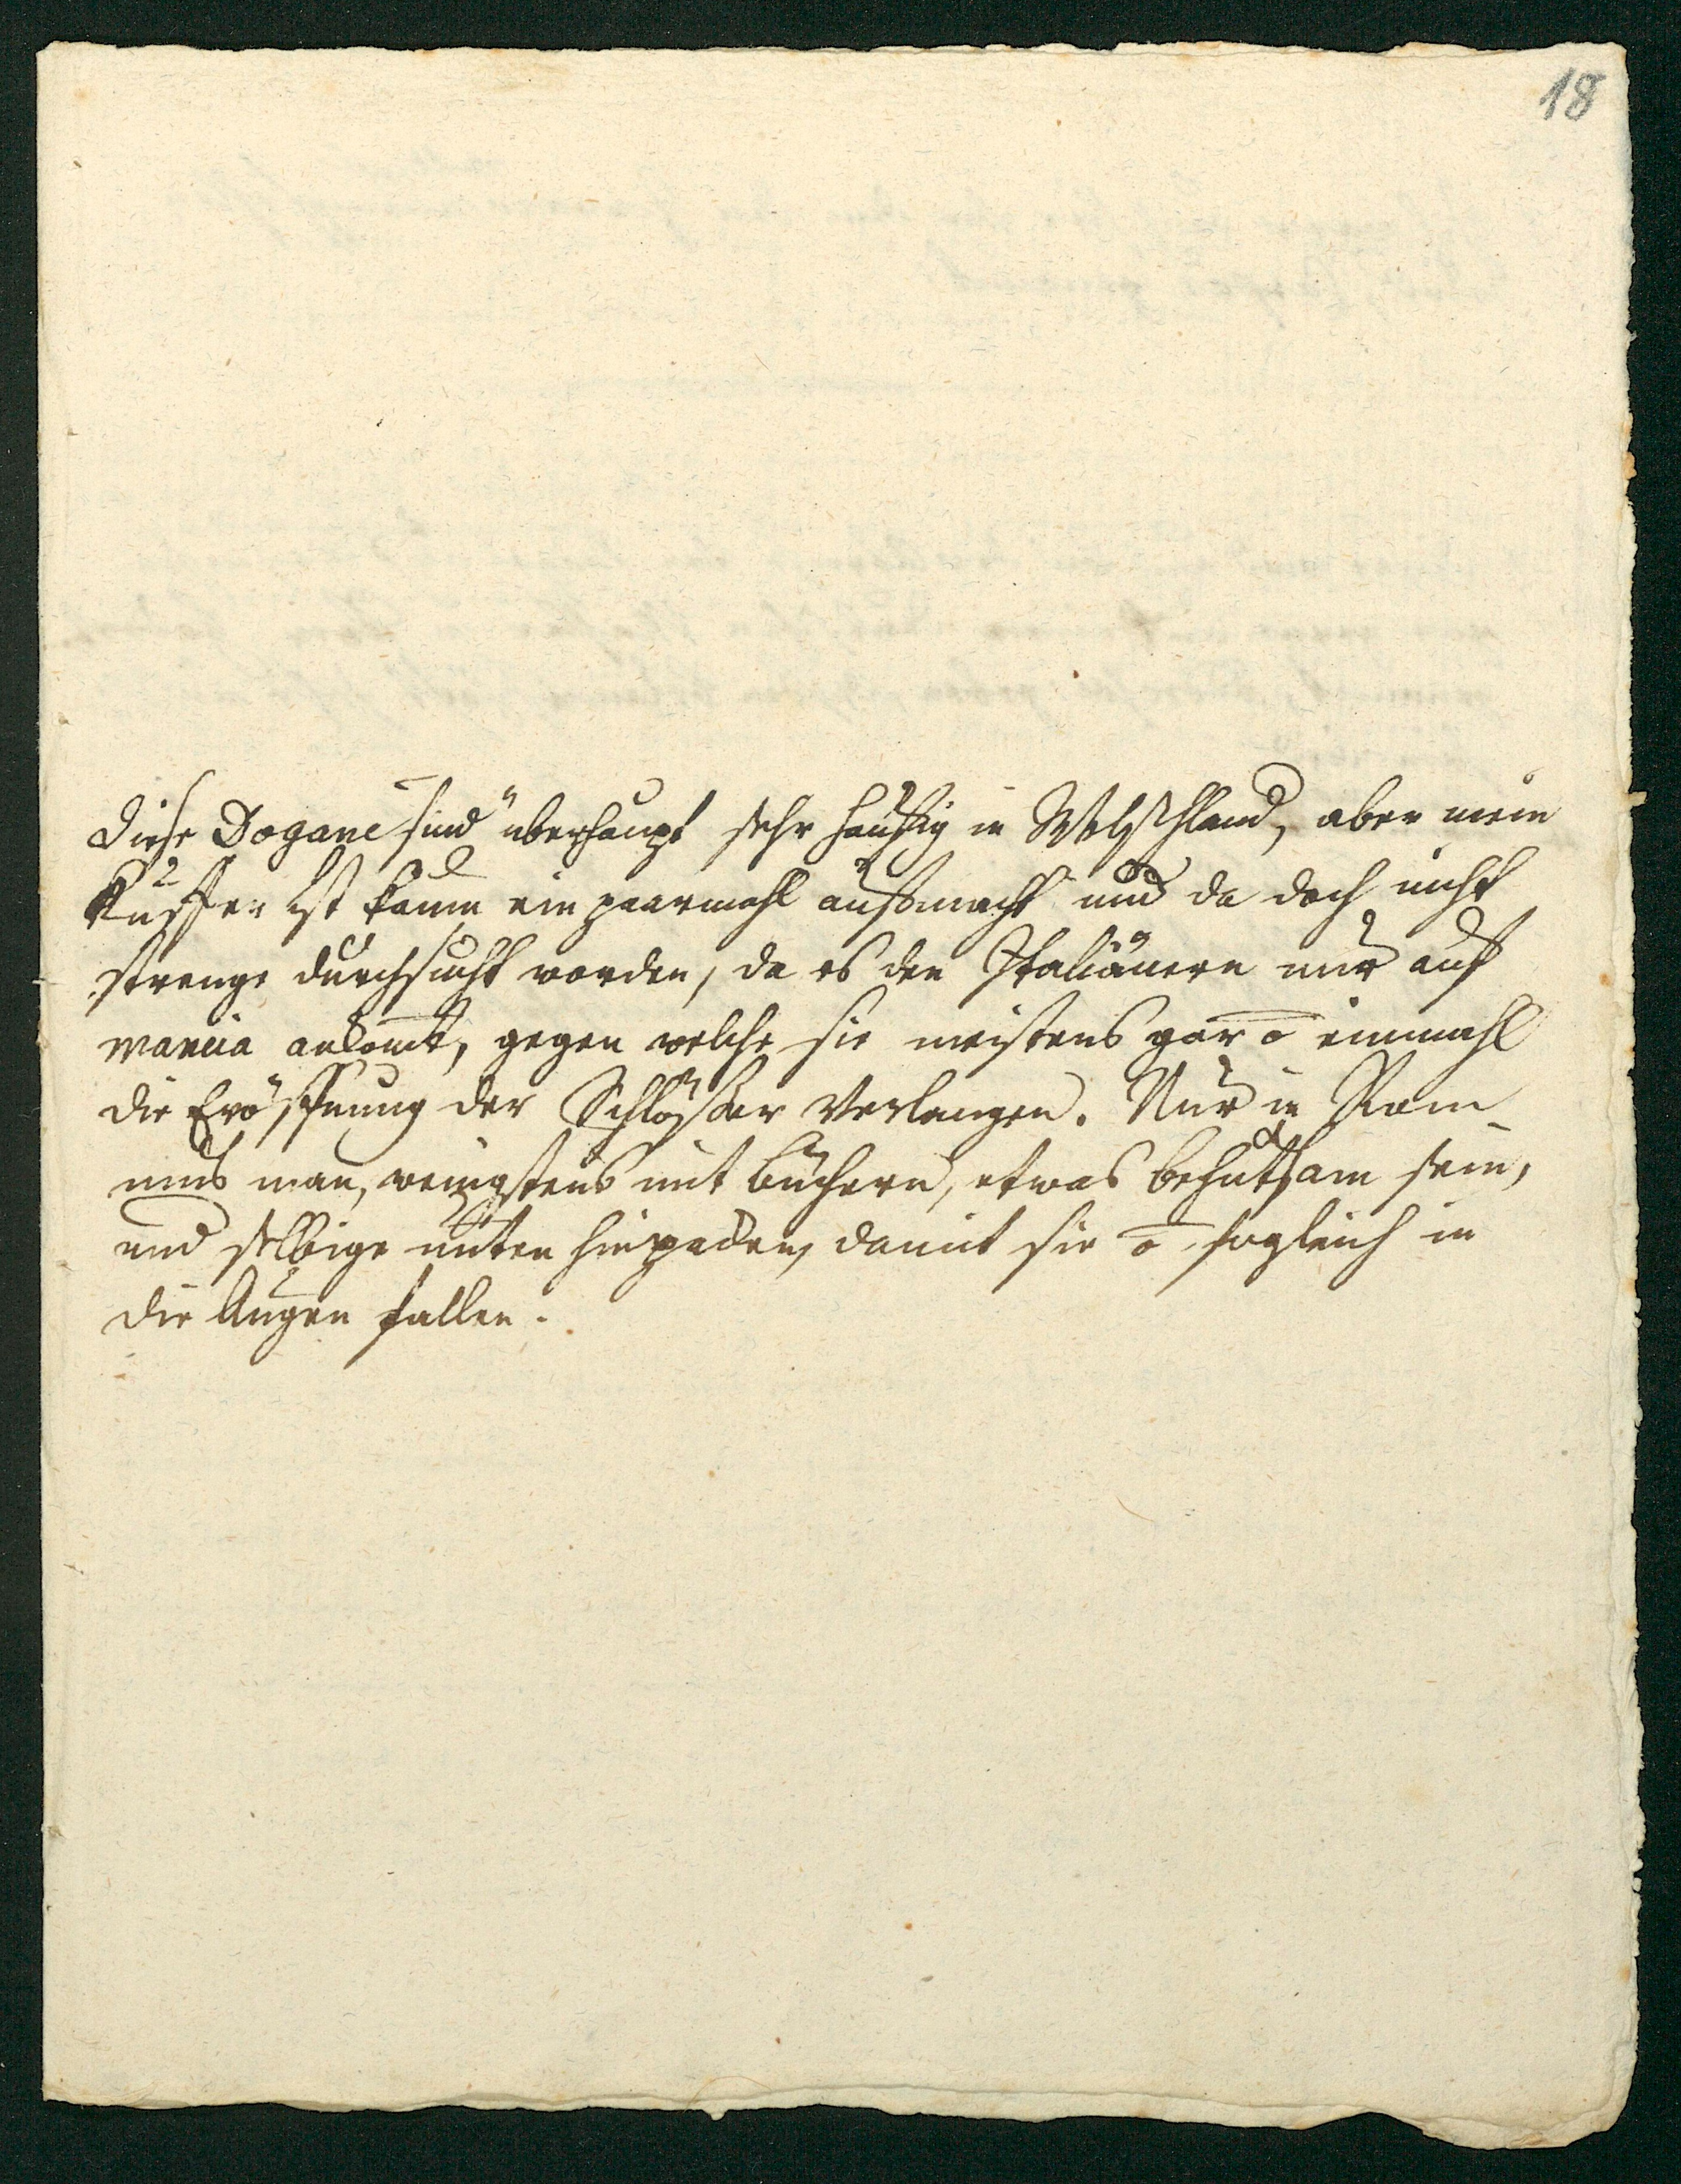 18
Diese Dogane sind überhaupt sehr häufig in Welschland, aber mein
Kuffer ist kaum ein paarmahl aufgemacht und da doch nicht
strenge durchsucht worden, da es den Italiänern nur auf
mancia ankomt, gegen welche sie meistens gar o einmahl
die Eröffnung der Schlößer verlangen. Nur in Rom
mus man, wenigstens mit Büchern, etwas behutsam sein,
und selbige unten hinpacken, damit sie o sogleich in
die Augen fallen.